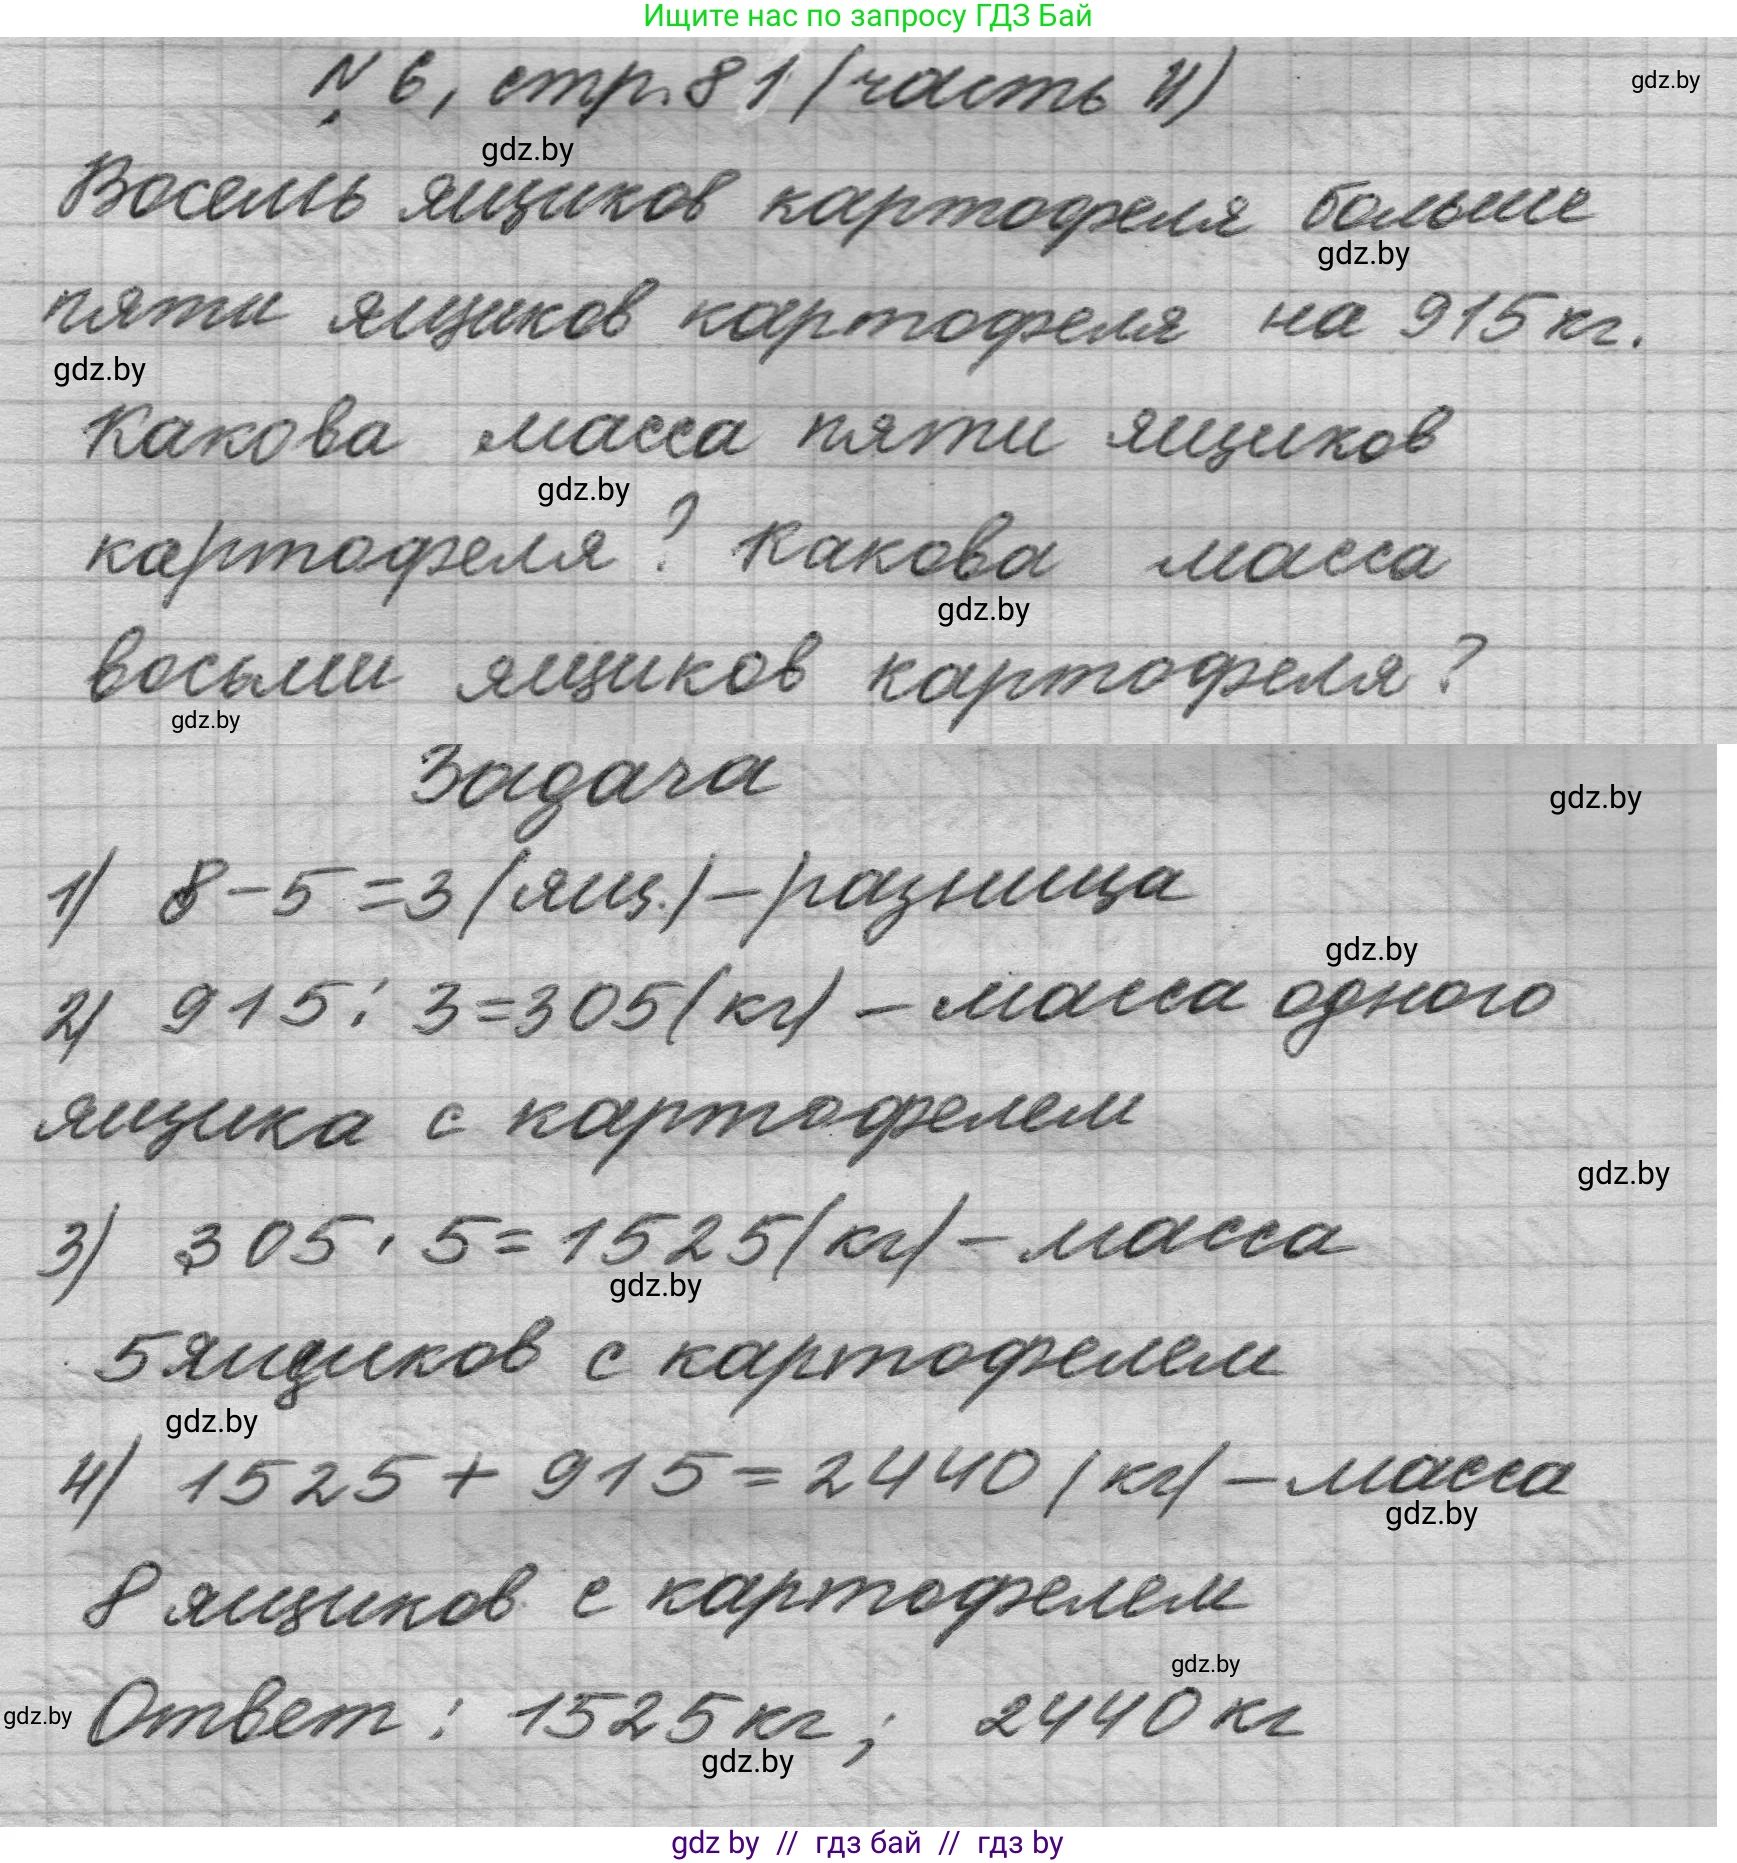 Ищите нас по запросу ГДЗ Бай
№ 6, стр. 81 (часть II)
gdz.by
gdz.by
Восемь ящиков картофеля больше
gdz.by
пяти ящиков картофеля на 915 кг.
gdz.by
Какова масса пяти ящиков
gdz.by
картофеля? Какова масса
gdz.by
восьми ящиков картофеля?
gdz.by
Задача
gdz.by
1) 8-5=3 (ящ.) - разница
gdz.by
2) 915 : 3=305 (кг) - масса одного
ящика с картофелем
gdz.by
3) 305 · 5=1525 (кг) - масса
gdz.by
5 ящиков с картофелем
gdz.by
4) 1525 + 915 = 2440 (кг) - масса
gdz.by
8 ящиков с картофелем
gdz.by
gdz.by
Ответ : 1525 кг ; 2440 кг
gdz.by
gdz by // гдз бай // гдз by